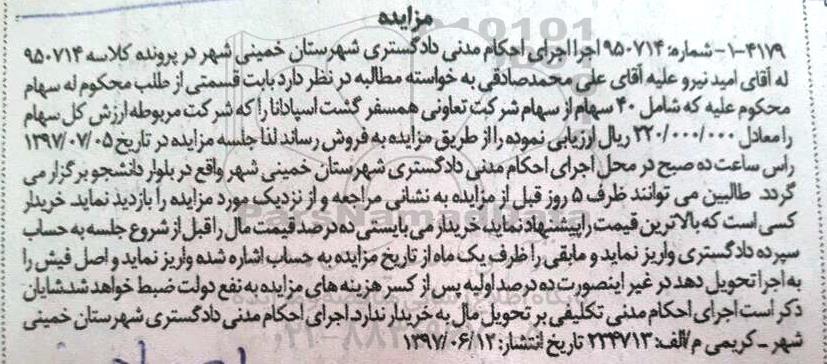 مزایده
۱-۴۱۷۹-شماره: ۹۵۰۷۱۴ اجرا اجرای احکام مدنی دادگستری شهرستان خمینی شهر در پرونده کلاسه ۹۵۰۷۱۴
له آقای امید نیرو علیه آقای علی محمدصادقی به خواسته مطالبه در نظر دارد بابت قسمتی از طلب محکوم له سهام
محکوم علیه که شامل ۴۰ سهام از سهام شرکت تعاونی همسفر گشت اسپادانا را که شرکت مربوطه ارزش کل سهام
را معادل ۳۲۰/۰۰۰/۰۰۰ ریال ارزیابی نموده را از طریق مزایده به فروش رساند لذا جلسه مزایده در تاریخ ۱۳۹۷/۰۷/۰۵
راس ساعت ده صبح در محل اجرای احکام مدنی دادگستری شهرستان خمینی شهر واقع در بلوار دانشجو برگزار می
گردد. طالبین می توانند ظرف ۵ روز قبل از مزایده به نشانی مراجعه و از نزدیک مورد مزایده را بازدید نماید. خریدار
کسی است که بالاترین قیمت را پیشنهاد نماید، خریدار می بایستی ده درصد قیمت مال را قبل از شروع جلسه به حساب
سپرده دادگستری واریز نماید و مابقی را ظرف یک ماه از تاریخ مزایده به حساب اشاره شده واریز نماید و اصل فیش را
به اجرا تحویل دهد در غیر اینصورت ده درصد اولیه پس از کسر هزینه های مزایده به نفع دولت ضبط خواهد شد.شایان
ذکر است اجرای احکام مدنی تکلیفی بر تحویل مال به خریدار ندارد. اجرای احکام مدنی دادگستری شهرستان خمینی
شهر - کریمی م/الف: ۲۳۴۷۱۳ تاریخ انتشار: ۱۳۹۷/۰۶/۱۲
ParsNamadData